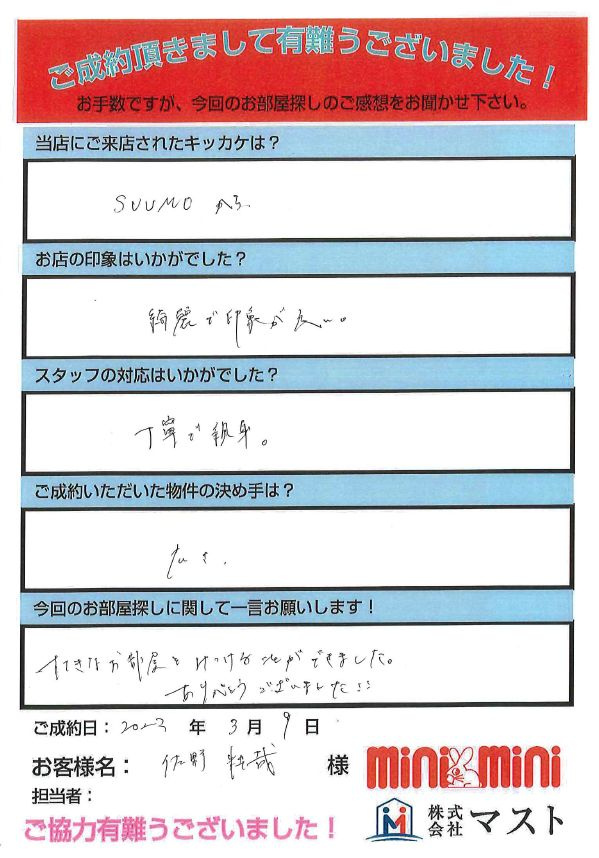 ご成約頂きまして有難うございました！
お手数ですが、今回のお部屋探しのご感想をお聞かせ下さい。
当店にご来店されたキッカケは？
SUUMO から
お店の印象はいかがでした？
綺麗で印象が良い。
スタッフの対応はいかがでした？
丁寧で親身。
ご成約いただいた物件の決め手は？
今回のお部屋探しに関して一言お願いします！
すてきなお部屋をみつけることができました。
ありがとうございました!!
ご成約日：2023 年 3 月 9 日
お客様名：佐野 哉 様
minimini
担当者：
株式会社マスト
ご協力有難うございました！